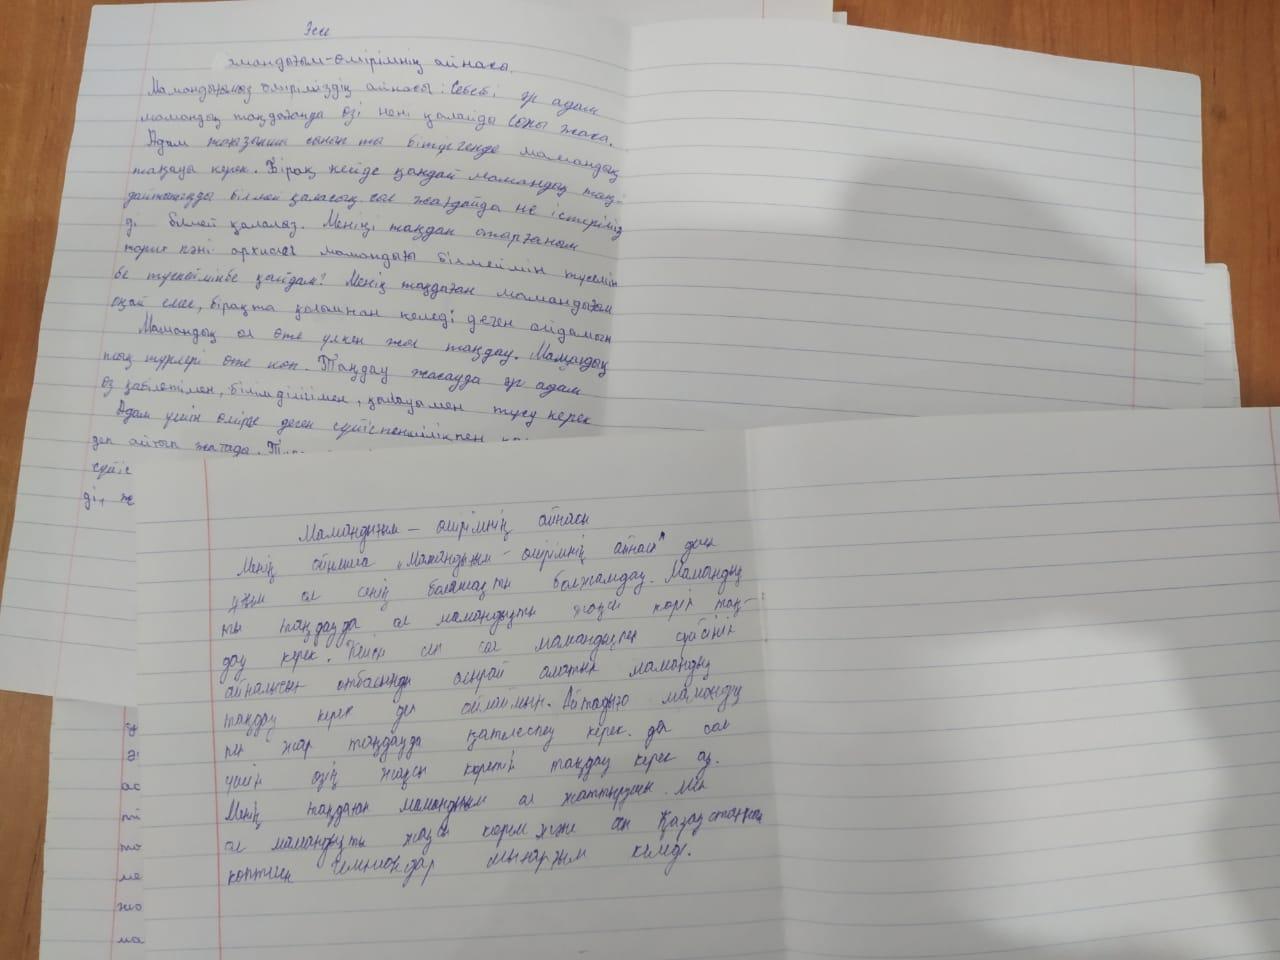 Эссе
мандығым-өмірімнің айнасы.
Мамандығымыз өміріміздің айнасы! Себебі әр адам
мамандық таңдағанда өзі нені қалайды соны жаса.
Адам тоғызыншы сынып та бітіргенде мамандық
таңдау керек. Бірақ кейде қандай мамандық таң-
дайтынызды білмей қаласың сол жағдайда не істеріміз
ді білмей қаламыз. Менің таңдап отырғаным
тарих пәні мамандығы білмеймін түсемін
бе түспеймінбе қайдам? Менің таңдаған мамандығым
оңай емес, бірақта қолымнан келеді деген ойдамын
Мамандық ол өте үлкен жол таңдау. Мамандық
тың түрлері өте көп. Таңдау жасауда әр адам
өз қабілетімен, білімділігімен, қалауымен түсу керек
Адам үшін өмірге деген сүйіспеншілікпен
деп айтып жатады.
сүйіс
ді, же
Мамандығым — өмірімнің айнасы
Менің ойымша „Мамандығым - өмірімнің айнасы" деген
ұғым ол сенің болашақты болжамдау. Мамандық
ты таңдауда ол мамандықты жақсы көріп таң-
дау керек. Кейін сен сол мамандықпен сүйсініп
айналысып отбасыңды асырай алатын мамандық
таңдау керек деп ойлаймын. Айтадығо мамандық
пен жар таңдауда қателеспеу керек. да сол
үшін өзің жақсы көретін таңдау керек
Менің таңдаған мамандығым ол жаттықтырушы. Мен
ол мамандықты жақсы көрем және де Қазақстаннан
көптеген чемпиондар шығарғым келеді.
ас
ті
то
ме
жо
ма